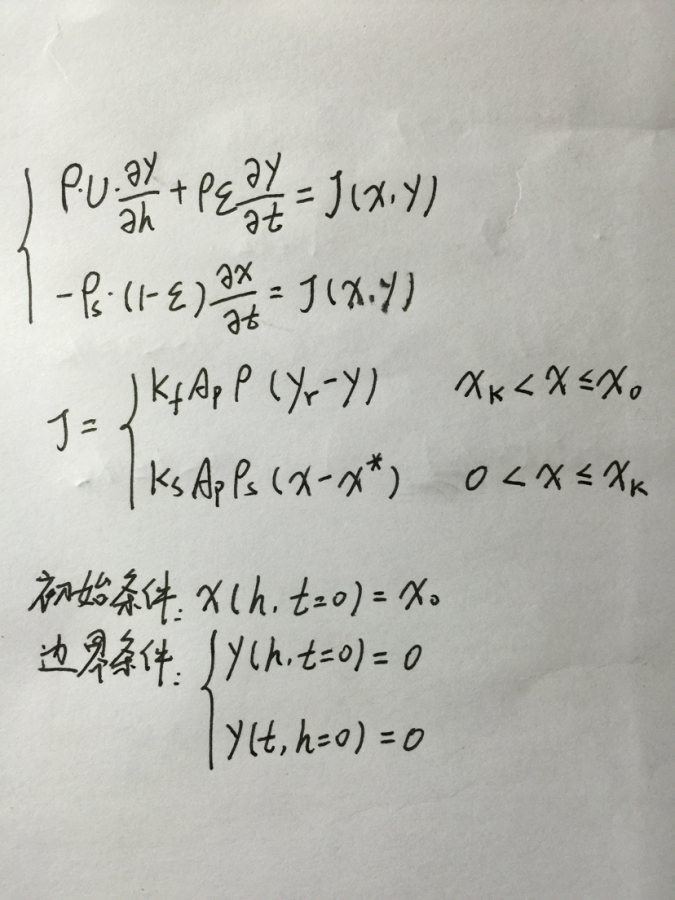 ρ·U·∂y/∂h + ρε ∂y/∂t = J(x,y)
-ρs·(1-ε) ∂x/∂t = J(x,y)
J = { kf Ap ρ (yr-y)    xK < x ≤ x0
ks Ap ρs (x-x*)    0 < x ≤ xK
初始条件: x(h, t=0) = x0
边界条件: { y(h, t=0) = 0
y(t, h=0) = 0